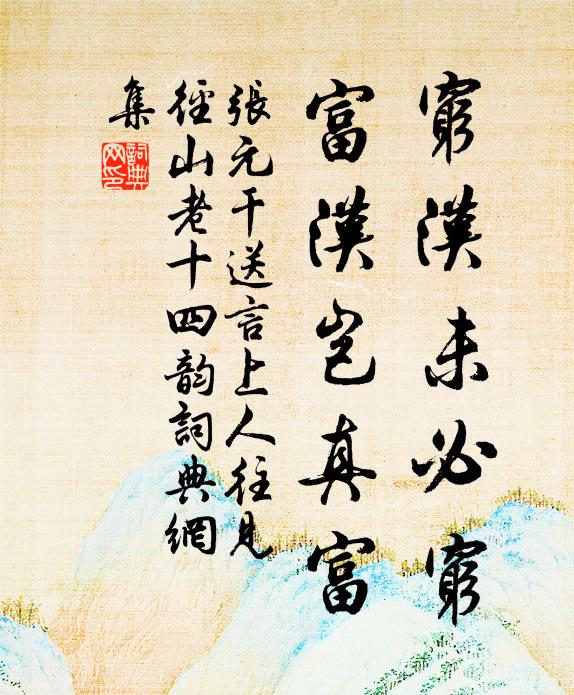 窮漢未必窮
富漢岂真富
張元干送言上人往見
徑山老十四韵詞典網
集
詞典网印